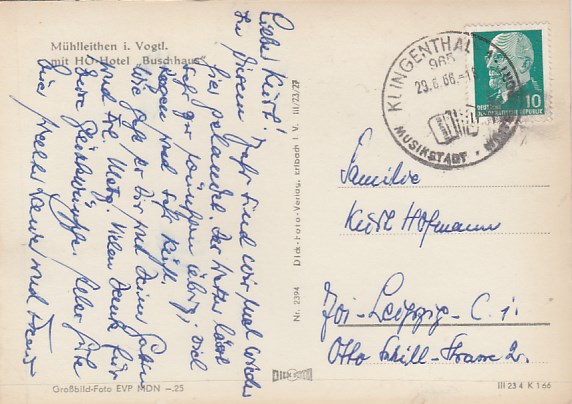 Mühlleithen i. Vogtl.
mit HO-Hotel „Buschhaus"
Liebe Kurt!
In diesem Jahr sind wir mal wieder
hier gelandet. Das Wetter lässt
sehr zu wünschen übrig, viel
Regen und sehr kühl.
Wie geht es Dir und Deiner
und Frl. Vielen Dank für
Eure Glückwünsche. Alles Gute
Eure
und
Nr. 2394 Dick-Foto-Verlag, Erlbach i. V. III/23/27
DICK
KLINGENTHAL
965
29.6.66
MUSIKSTADT
DEUTSCHE
DEMOKRATISCHE REPUBLIK
10
Familie
Kurt Hofmann
701-Leipzig-C. 1.
Otto Schill-Strasse 2.
Großbild-Foto EVP MDN –,25
III 23 4 K 1 66